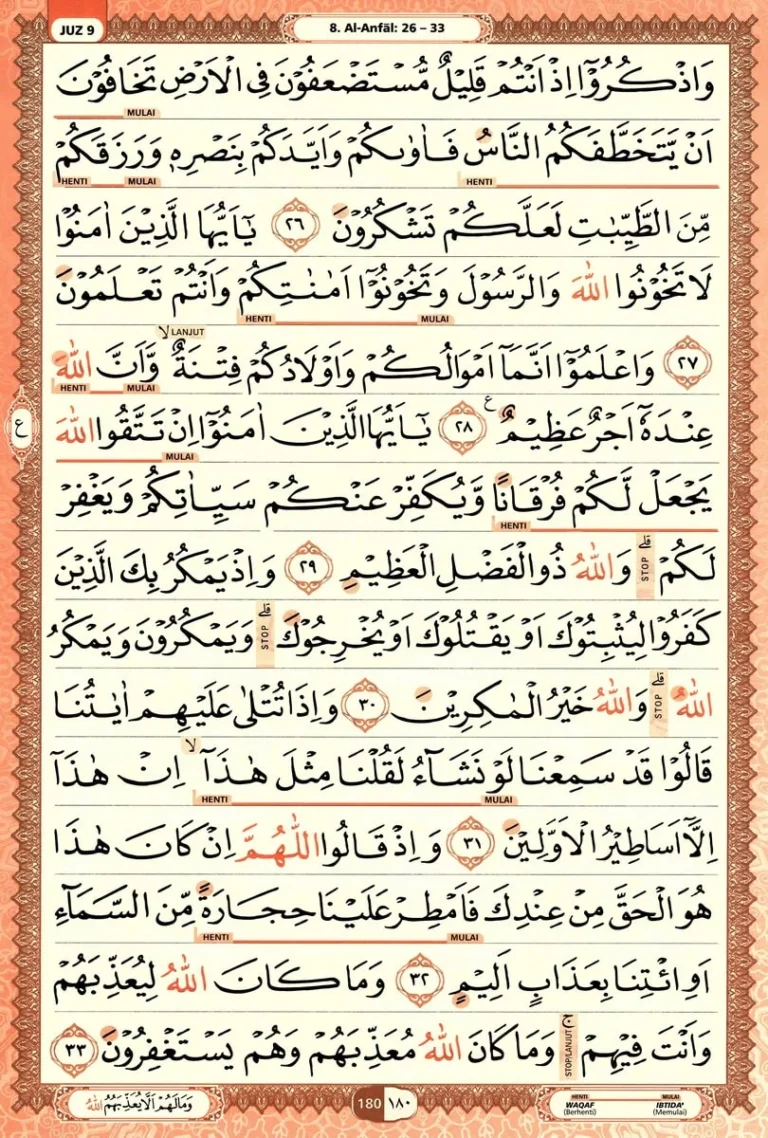 JUZ 9
8. Al-Anfāl: 26 – 33
وَاذْكُرُوْٓا اِذْ اَنْتُمْ قَلِيْلٌ مُّسْتَضْعَفُوْنَ فِى الْاَرْضِ تَخَافُوْنَ
MULAI
اَنْ يَّتَخَطَّفَكُمُ النَّاسُ فَاٰوٰىكُمْ وَاَيَّدَكُمْ بِنَصْرِهٖ وَرَزَقَكُمْ
HENTI MULAI HENTI
مِّنَ الطَّيِّبٰتِ لَعَلَّكُمْ تَشْكُرُوْنَ ٢٦ يٰٓاَيُّهَا الَّذِيْنَ اٰمَنُوْا
لَا تَخُوْنُوا اللّٰهَ وَالرَّسُوْلَ وَتَخُوْنُوْٓا اَمٰنٰتِكُمْ وَاَنْتُمْ تَعْلَمُوْنَ
HENTI MULAI
لا LANJUT
٢٧ وَاعْلَمُوْٓا اَنَّمَآ اَمْوَالُكُمْ وَاَوْلَادُكُمْ فِتْنَةٌ وَّاَنَّ اللّٰهَ
HENTI MULAI
عِنْدَهٗٓ اَجْرٌ عَظِيْمٌ ࣖ ٢٨ يٰٓاَيُّهَا الَّذِيْنَ اٰمَنُوْٓا اِنْ تَتَّقُوا اللّٰهَ
ع
MULAI
يَجْعَلْ لَّكُمْ فُرْقَانًا وَّيُكَفِّرْ عَنْكُمْ سَيِّاٰتِكُمْ وَيَغْفِرْ
HENTI
لَكُمْۗ STOP وَاللّٰهُ ذُو الْفَضْلِ الْعَظِيْمِ ٢٩ وَاِذْ يَمْكُرُ بِكَ الَّذِيْنَ
كَفَرُوْا لِيُثْبِتُوْكَ اَوْ يَقْتُلُوْكَ اَوْ يُخْرِجُوْكَۗ STOP وَيَمْكُرُوْنَ وَيَمْكُرُ
اللّٰهُۗ STOP وَاللّٰهُ خَيْرُ الْمٰكِرِيْنَ ٣٠ وَاِذَا تُتْلٰى عَلَيْهِمْ اٰيٰتُنَا
قَالُوْا قَدْ سَمِعْنَا لَوْ نَشَاۤءُ لَقُلْنَا مِثْلَ هٰذَآ ۙ اِنْ هٰذَآ
HENTI MULAI
اِلَّآ اَسَاطِيْرُ الْاَوَّلِيْنَ ٣١ وَاِذْ قَالُوا اللّٰهُمَّ اِنْ كَانَ هٰذَا
هُوَ الْحَقَّ مِنْ عِنْدِكَ فَاَمْطِرْ عَلَيْنَا حِجَارَةً مِّنَ السَّمَاۤءِ
HENTI MULAI
اَوِ ائْتِنَا بِعَذَابٍ اَلِيْمٍ ٣٢ وَمَا كَانَ اللّٰهُ لِيُعَذِّبَهُمْ
وَاَنْتَ فِيْهِمْۚ STOP/LANJUT وَمَا كَانَ اللّٰهُ مُعَذِّبَهُمْ وَهُمْ يَسْتَغْفِرُوْنَ ٣٣
وَمَا لَهُمْ اَلَّا يُعَذِّبَهُمُ اللّٰهُ
180 ١٨٠
HENTI MULAI
WAQAF IBTIDA'
(Berhenti) (Memulai)